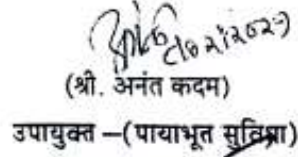 (श्री. अनंत कदम)
उपायुक्त –(पायाभूत सुविधा)